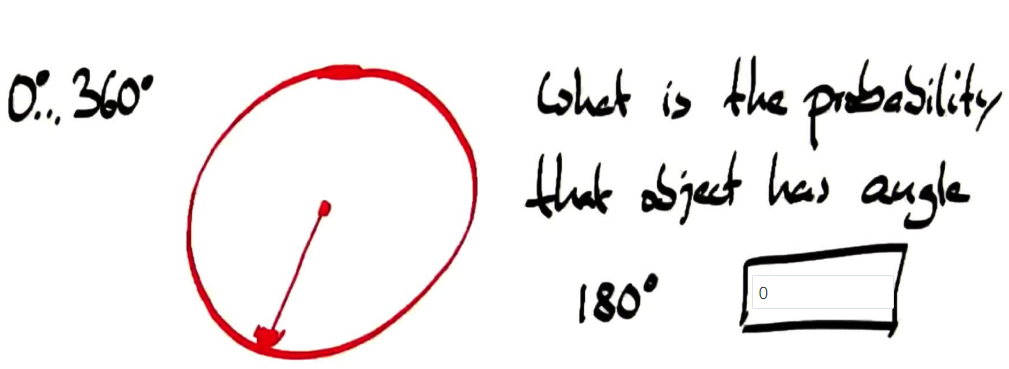 0°... 360°
What is the probability
that object has angle
180°
0